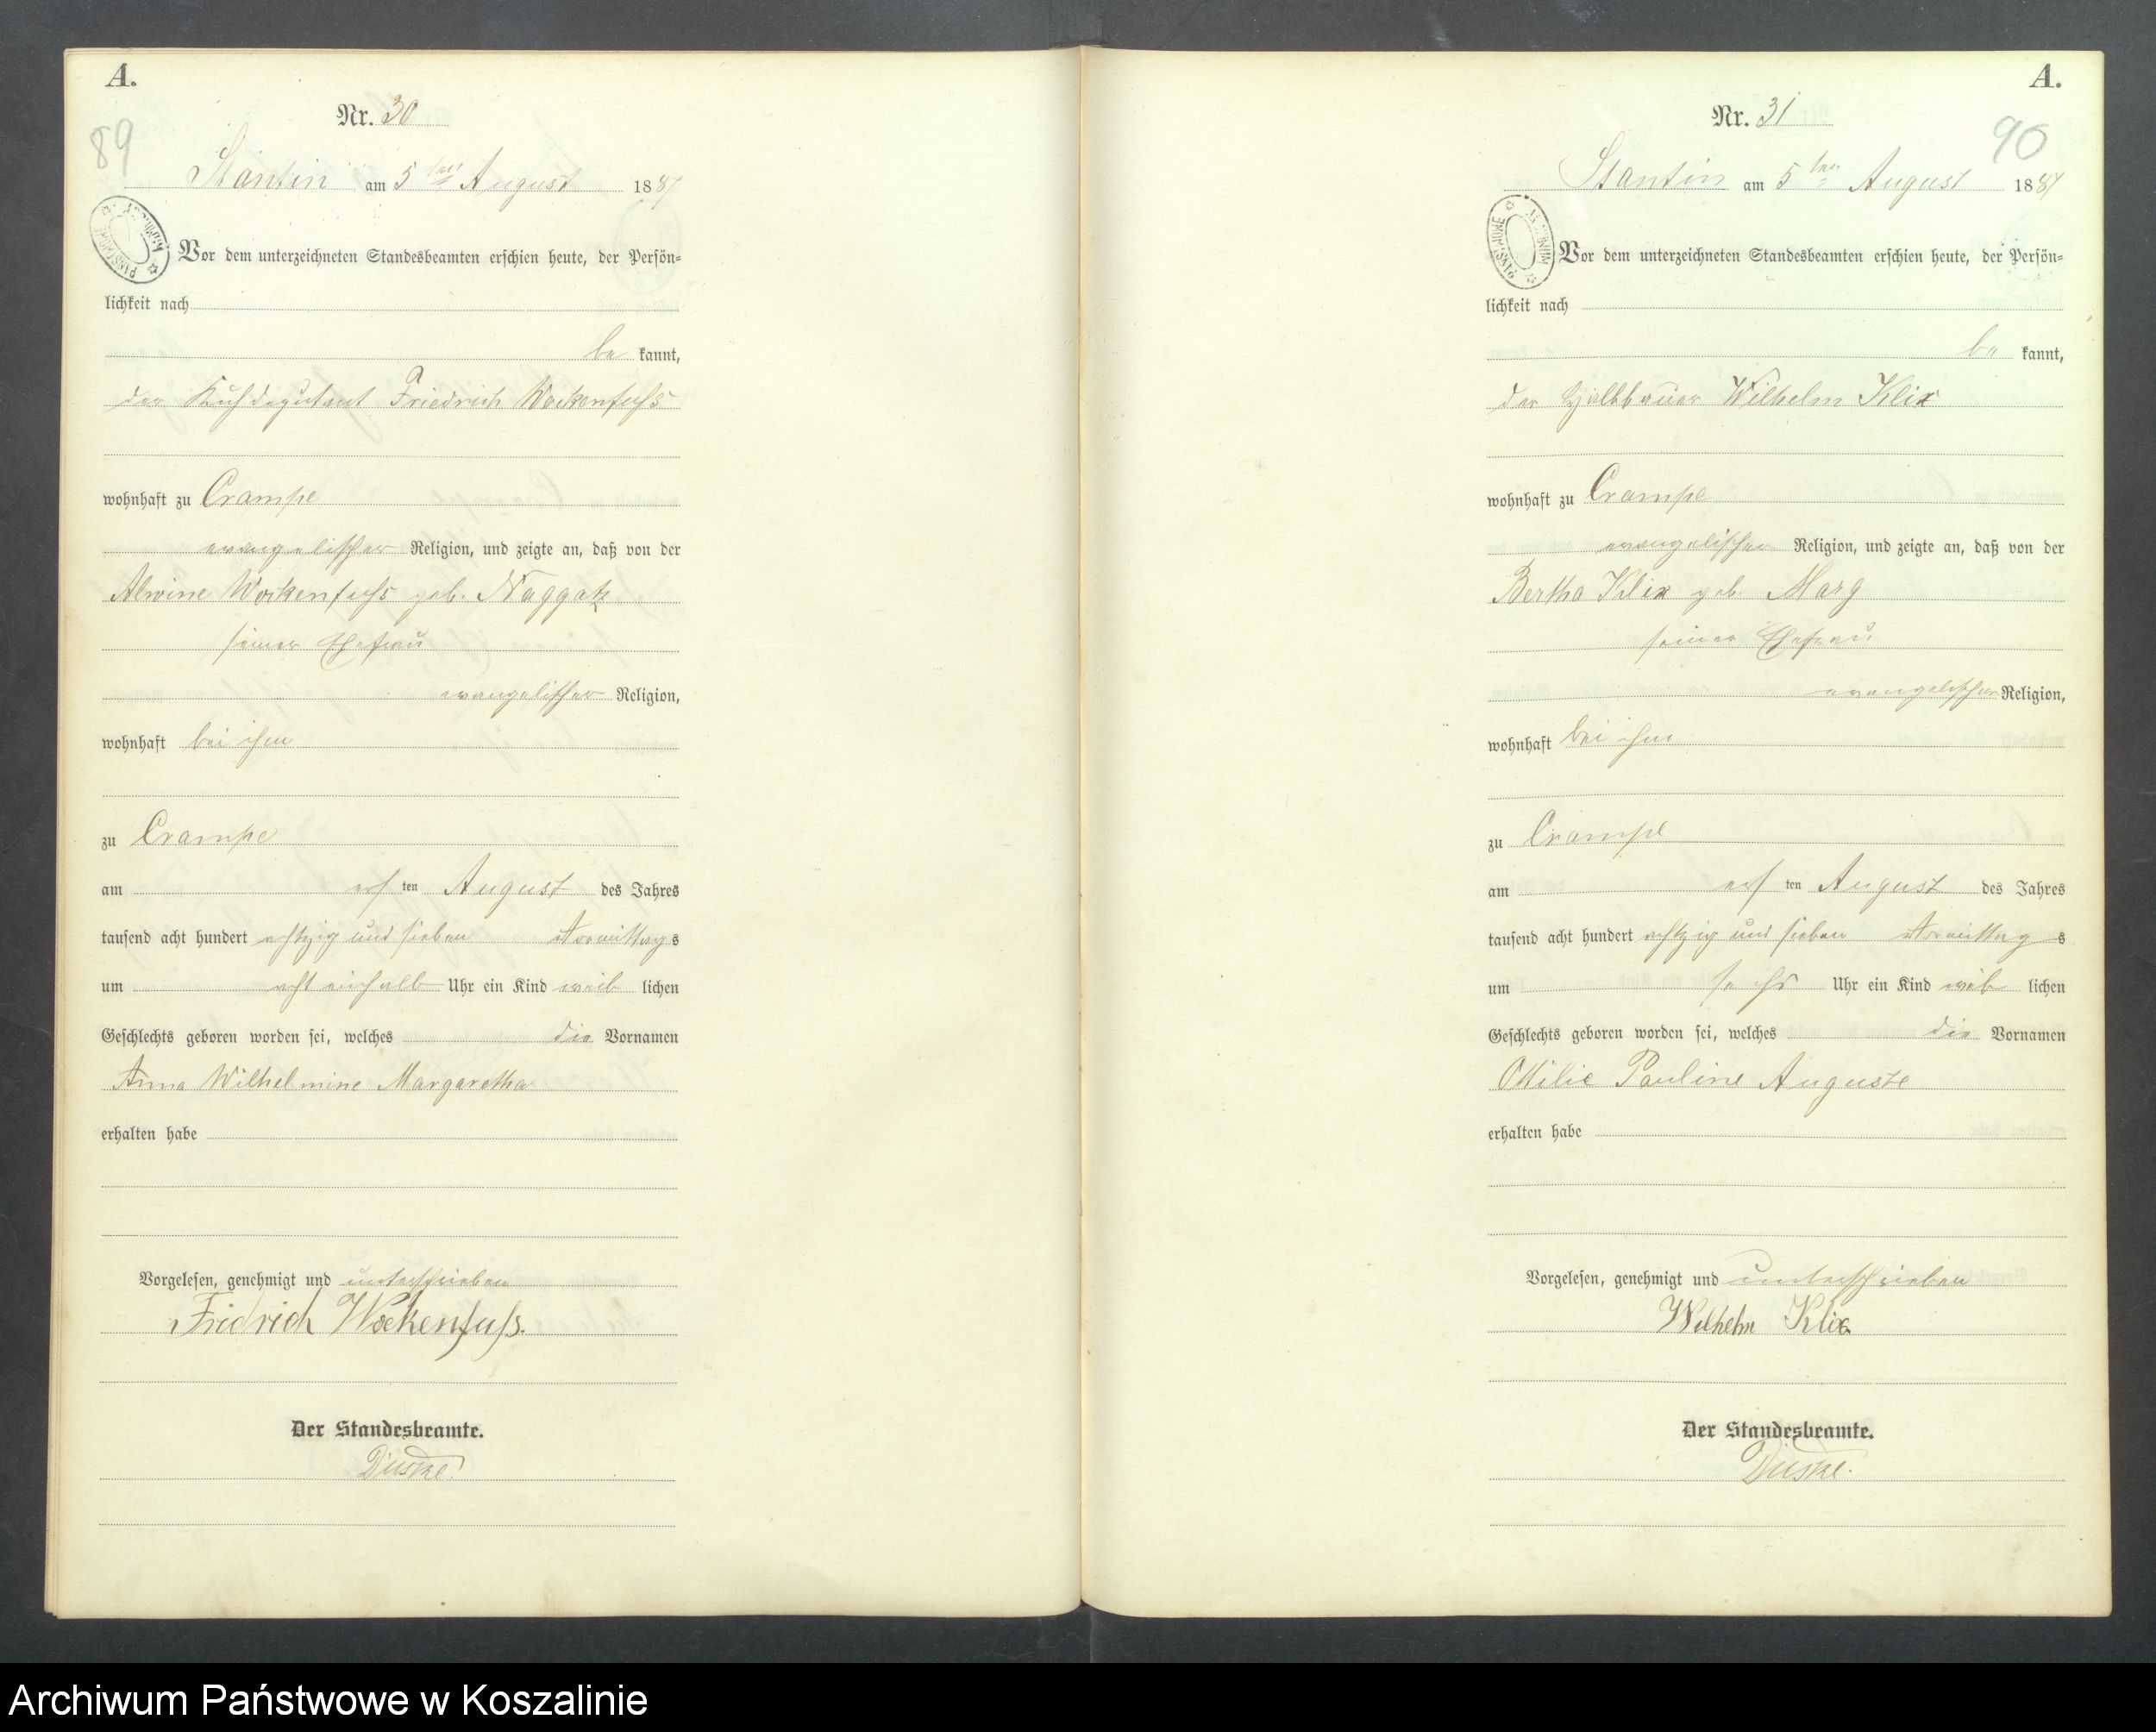 A.
Nr. 30
89
Stantin am 5ten August 1887
ARCHIWUM PAŃSTWOWE
Vor dem unterzeichneten Standesbeamten erschien heute, der Persön-
lichkeit nach
be kannt,
der Friedrich Wockenfuhs
wohnhaft zu Crampe
evangelischer Religion, und zeigte an, daß von der
Alwine Wockenfuhs geb. Naggatz
seiner Ehefrau
evangelischer Religion,
wohnhaft bei ihm
zu Crampe
am ersten August des Jahres
tausend acht hundert achtzig und sieben Vormittags
um acht einhalb Uhr ein Kind weib lichen
Geschlechts geboren worden sei, welches die Vornamen
Anna Wilhelmine Margaretha
erhalten habe
Vorgelesen, genehmigt und unterschrieben
Fridrich Wockenfuß.
Der Standesbeamte.
A.
Nr. 31
90
Stantin am 5ten August 1887
ARCHIWUM PAŃSTWOWE
Vor dem unterzeichneten Standesbeamten erschien heute, der Persön-
lichkeit nach
be kannt,
der Halbbauer Wilhelm Klix
wohnhaft zu Crampe
evangelischer Religion, und zeigte an, daß von der
Bertha Klix geb. Marg
seiner Ehefrau
evangelischer Religion,
wohnhaft bei ihm
zu Crampe
am ersten August des Jahres
tausend acht hundert achtzig und sieben Vormittags
um sechs Uhr ein Kind weib lichen
Geschlechts geboren worden sei, welches die Vornamen
Ottilie Pauline Auguste
erhalten habe
Vorgelesen, genehmigt und unterschrieben
Wilhelm Klix
Der Standesbeamte.
Archiwum Państwowe w Koszalinie